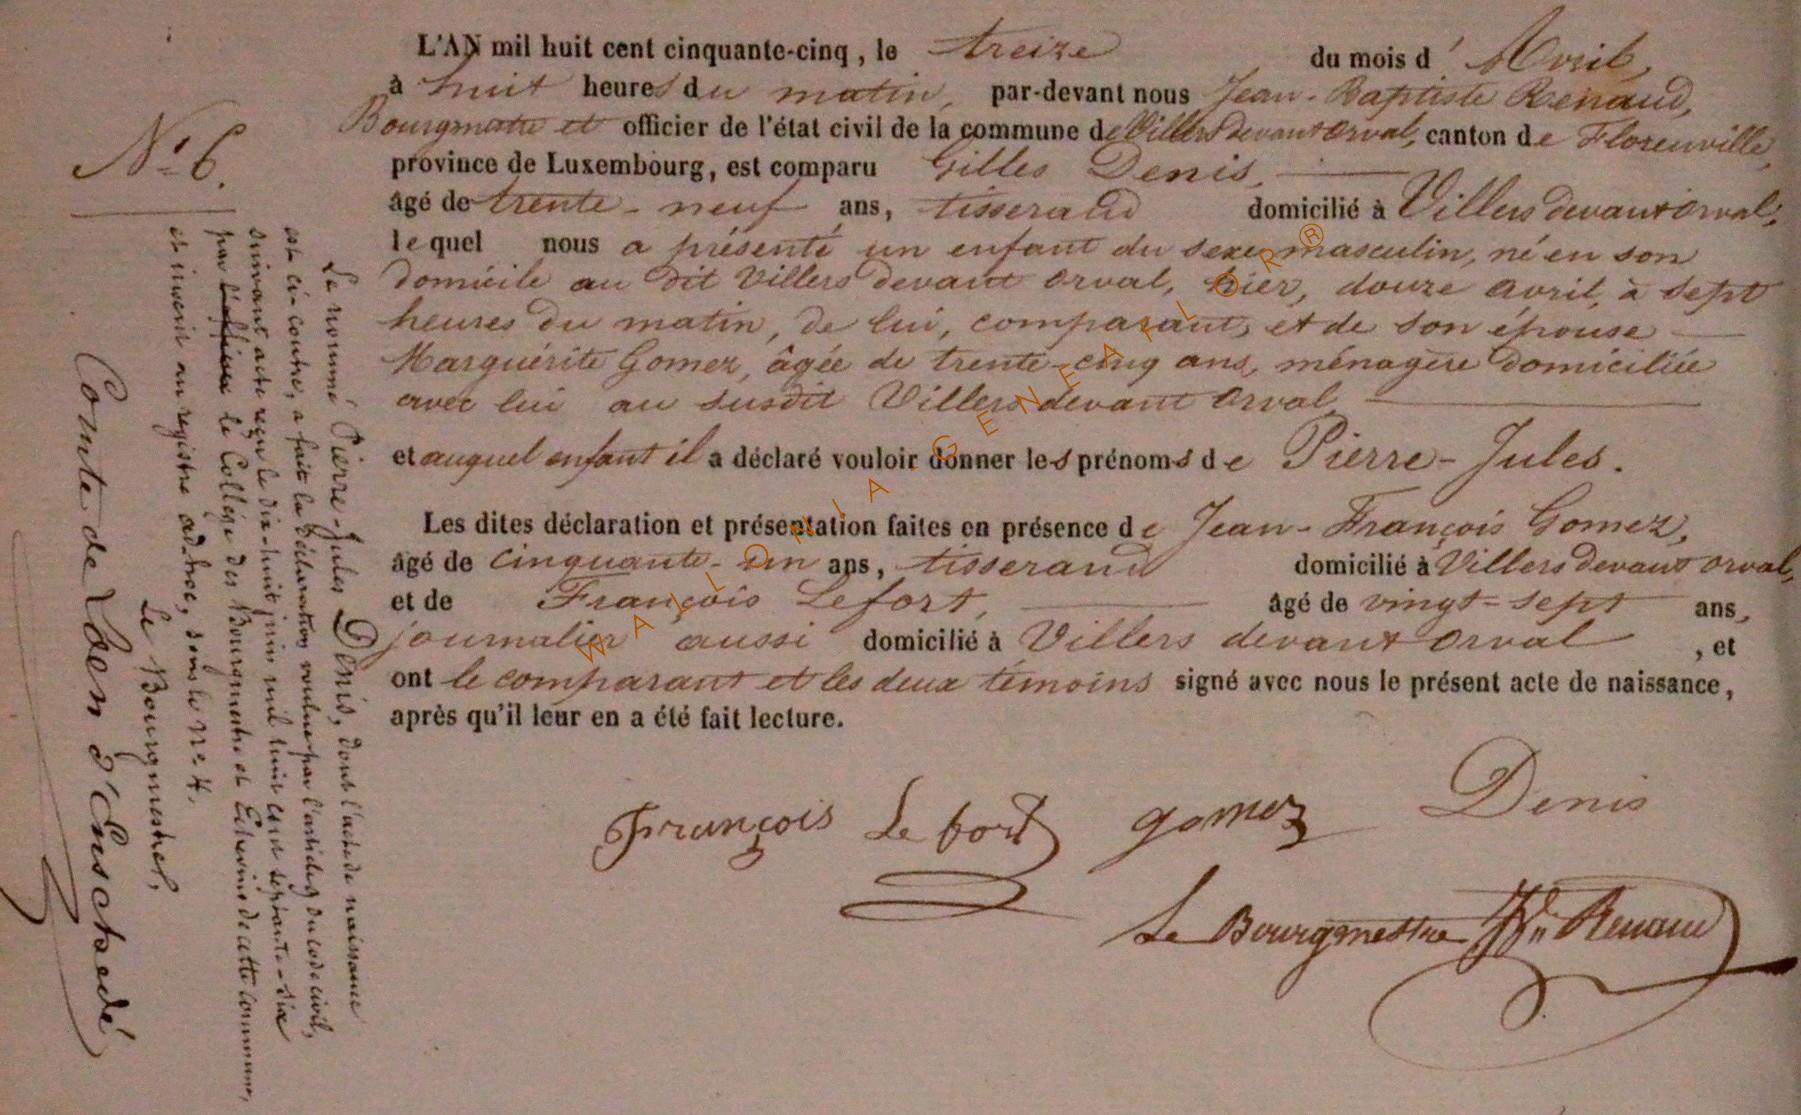 N° 6.
L'AN mil huit cent cinquante-cinq, le treize du mois d'Avril,
à huit heures du matin, par-devant nous Jean-Baptiste Renaud,
Bourgmestre et officier de l'état civil de la commune de Villers devant Orval, canton de Florenville,
province de Luxembourg, est comparu Gilles Denis,
âgé de trente-neuf ans, tisserand domicilié à Villers devant Orval,
lequel nous a présenté un enfant du sexe masculin, né en son
domicile au dit Villers devant Orval, hier, douze avril, à sept
heures du matin, de lui, comparant, et de son épouse
Marguérite Gomez, âgée de trente-cinq ans, ménagère domiciliée
avec lui au susdit Villers devant Orval
et auquel enfant il a déclaré vouloir donner les prénoms de Pierre-Jules.
Les dites déclaration et présentation faites en présence de Jean-François Gomez,
âgé de cinquante-un ans, tisserand domicilié à Villers devant Orval,
et de François Lefort, âgé de vingt-sept ans,
journalier aussi domicilié à Villers devant Orval, et
ont le comparant et les deux témoins signé avec nous le présent acte de naissance,
après qu'il leur en a été fait lecture.
François Lefort gomez Denis
Le Bourgmestre Jn Bte Renaud
Le nommé Pierre-Jules Denis, dont l'acte de naissance
est ci-contre, a fait la déclaration voulue par l'article 9 du code civil,
suivant acte reçu le dix-huit juin mil huit cent septante-six
par le Collége des Bourgmestre et Echevins de cette commune,
et inscrit au registre ad-hoc, sous le N° 4.
Le Bourgmestre,
Comte de Loen d'Enschedé
WALLONIA GENEAFLOR ®